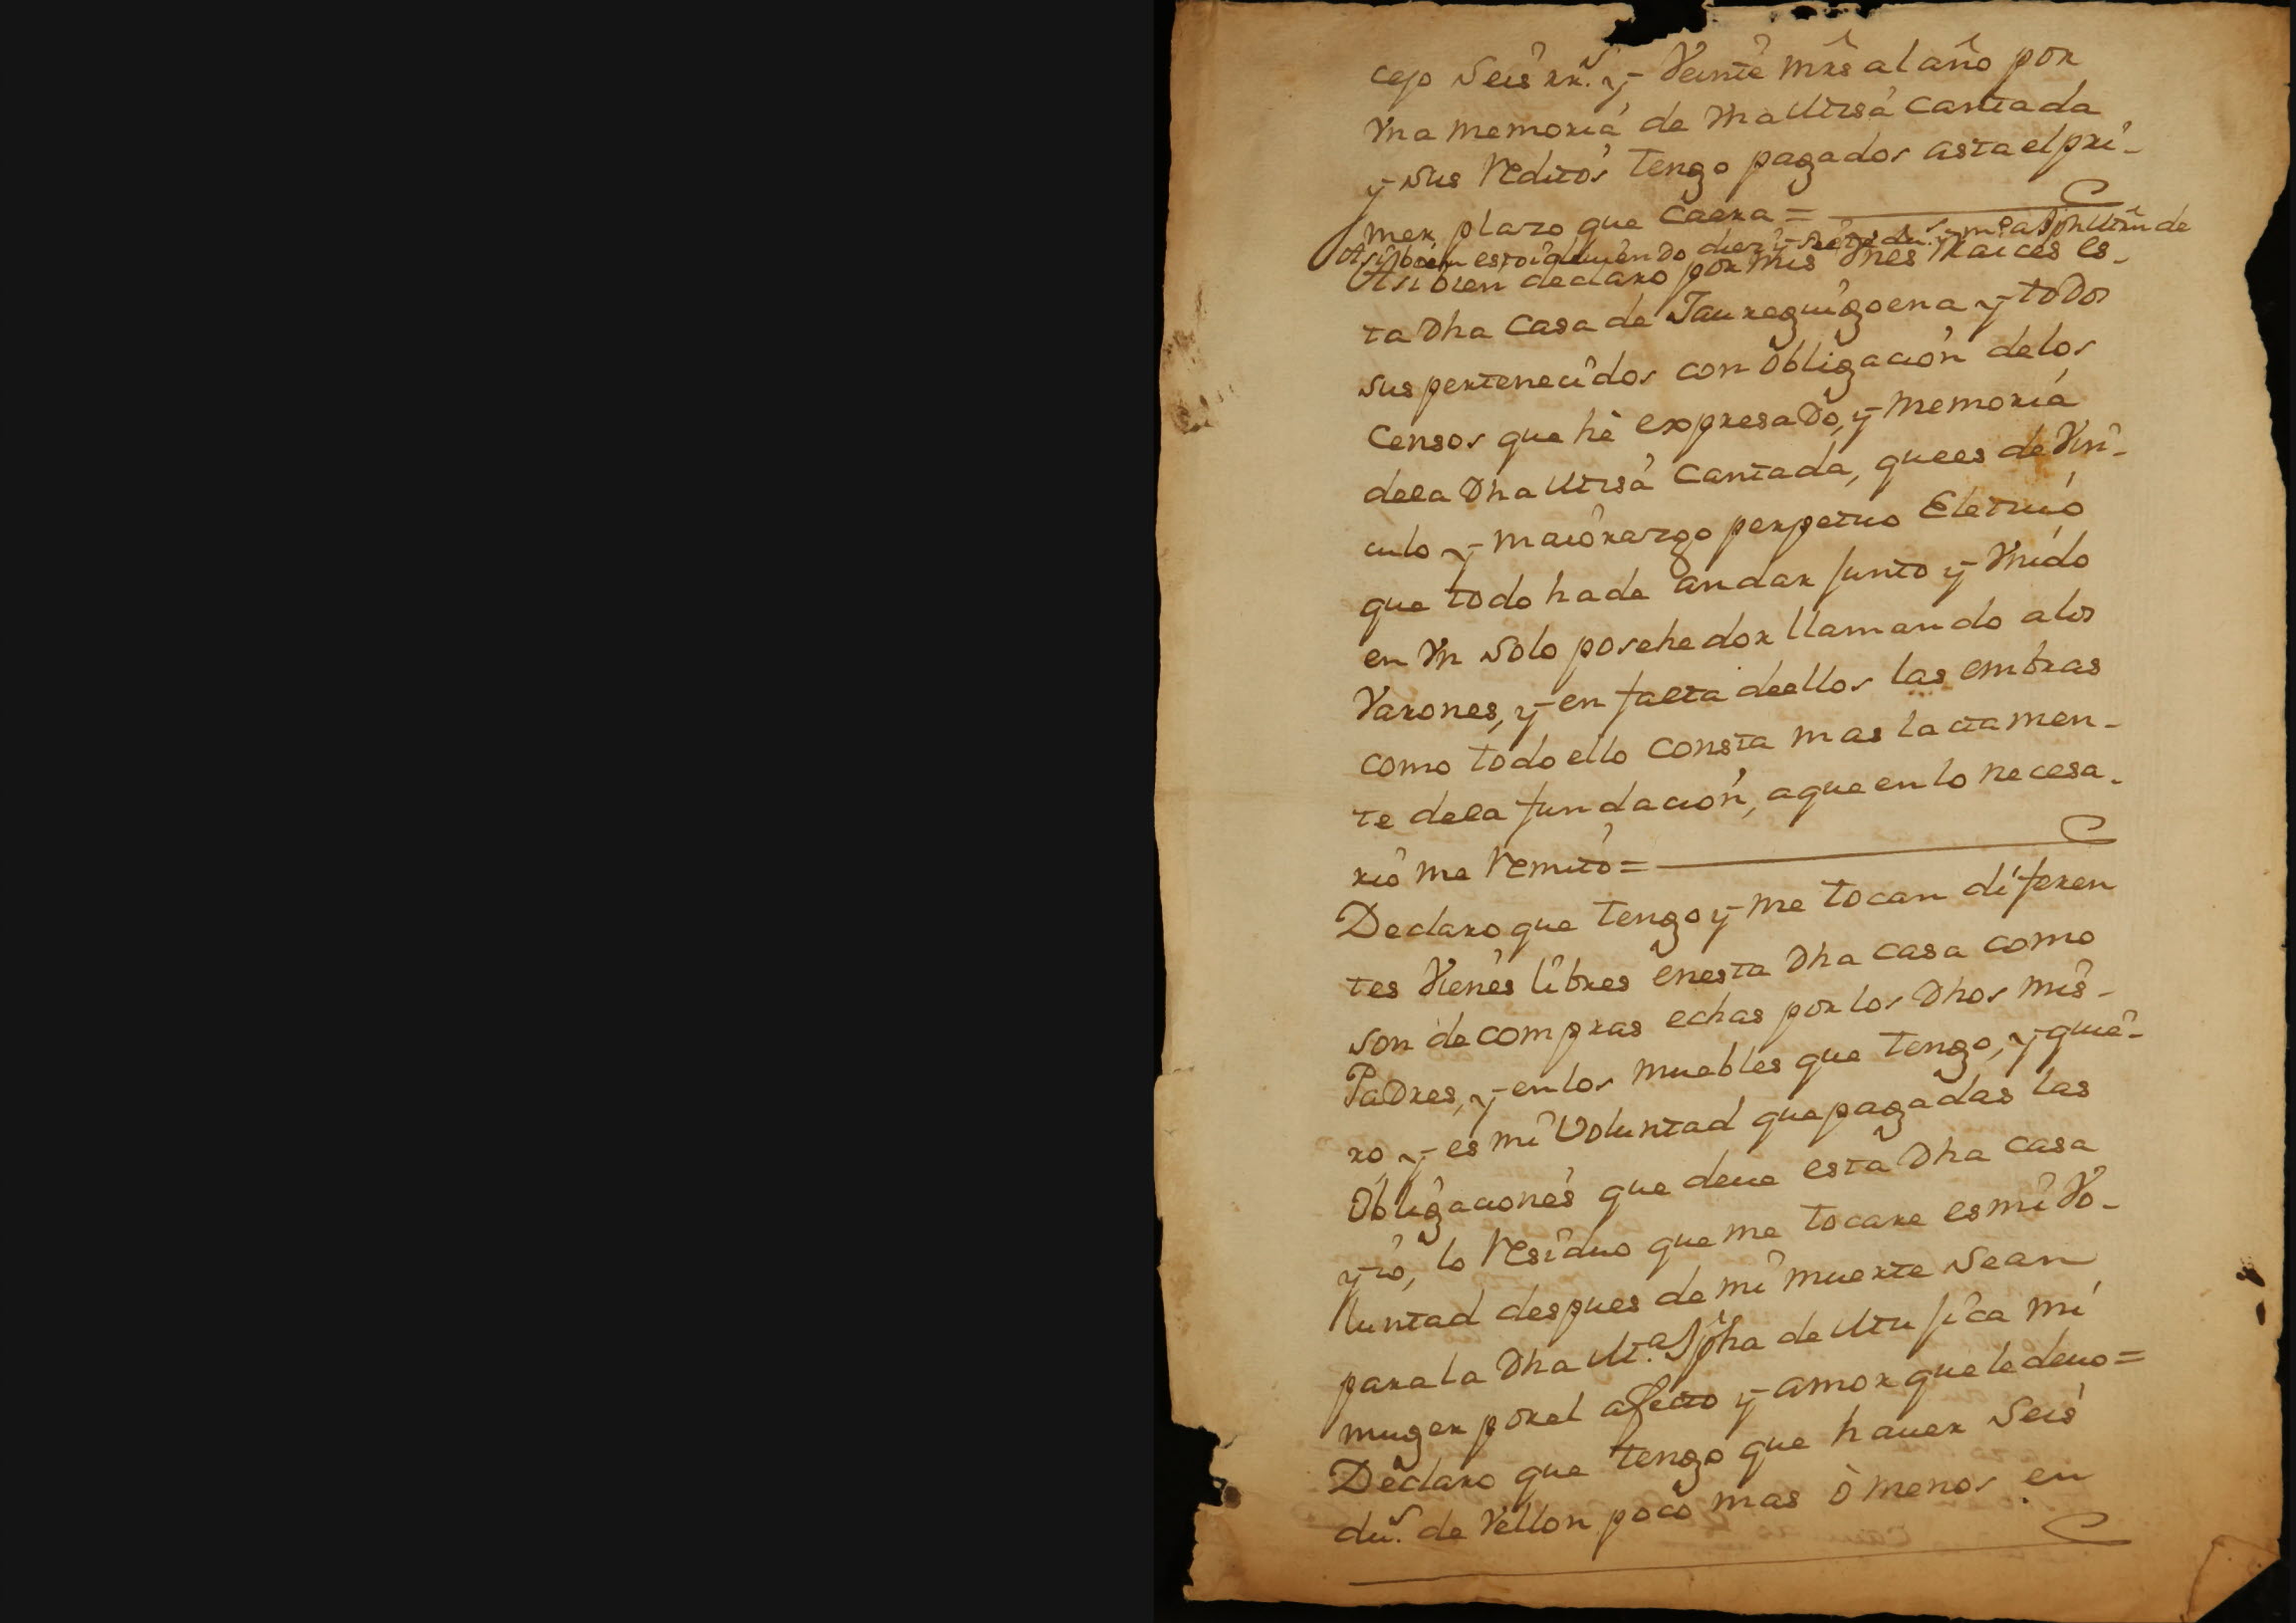 cejo Seis rrs. y Veinte mrs al año por
Vna memoria de Vna Missa Cantada
y sus Reditos tengo pagados asta el pri-
mer plazo que Caera =
Asi bien estoi deuiendo diez y siete dus. y mo a Jph Mrn de
Asi bien declaro por mis Vnes Raices es-
ta Dha Casa de Jaureguigoena y todos
sus pertenecidos con Obligacion de los
Censos que hè expresado, y Memoria
dela Dha Missa Cantada, que es de Vin-
culo y maiorazgo perpetuo Eletiuo
que todo hade andar junto y Vnido
en Vn Solo posehedor llamando alos
Varones, y en falta deellos las embras
como todo ello Consta mas lactamen-
te dela fundacion, aque en lo necesa-
rio me Remito =
Declaro que tengo y me tocan diferen
tes Vienes libres enesta Dha Casa como
son de compras echas por los Dhos mis-
Padres, y en los muebles que tengo, y quie-
ro, y es mi Voluntad que pagadas las
Obligaciones que deue esta Dha Casa
y io, lo Residuo que me tocare es mi Vo-
luntad despues de mi muerte Sean
para la Dha Ma. Jpha de Mu jica mi
muger por el afecto y amor que le deuo =
Declaro que tengo que hauer Seis
dus. de Vellon poco mas ò menos en